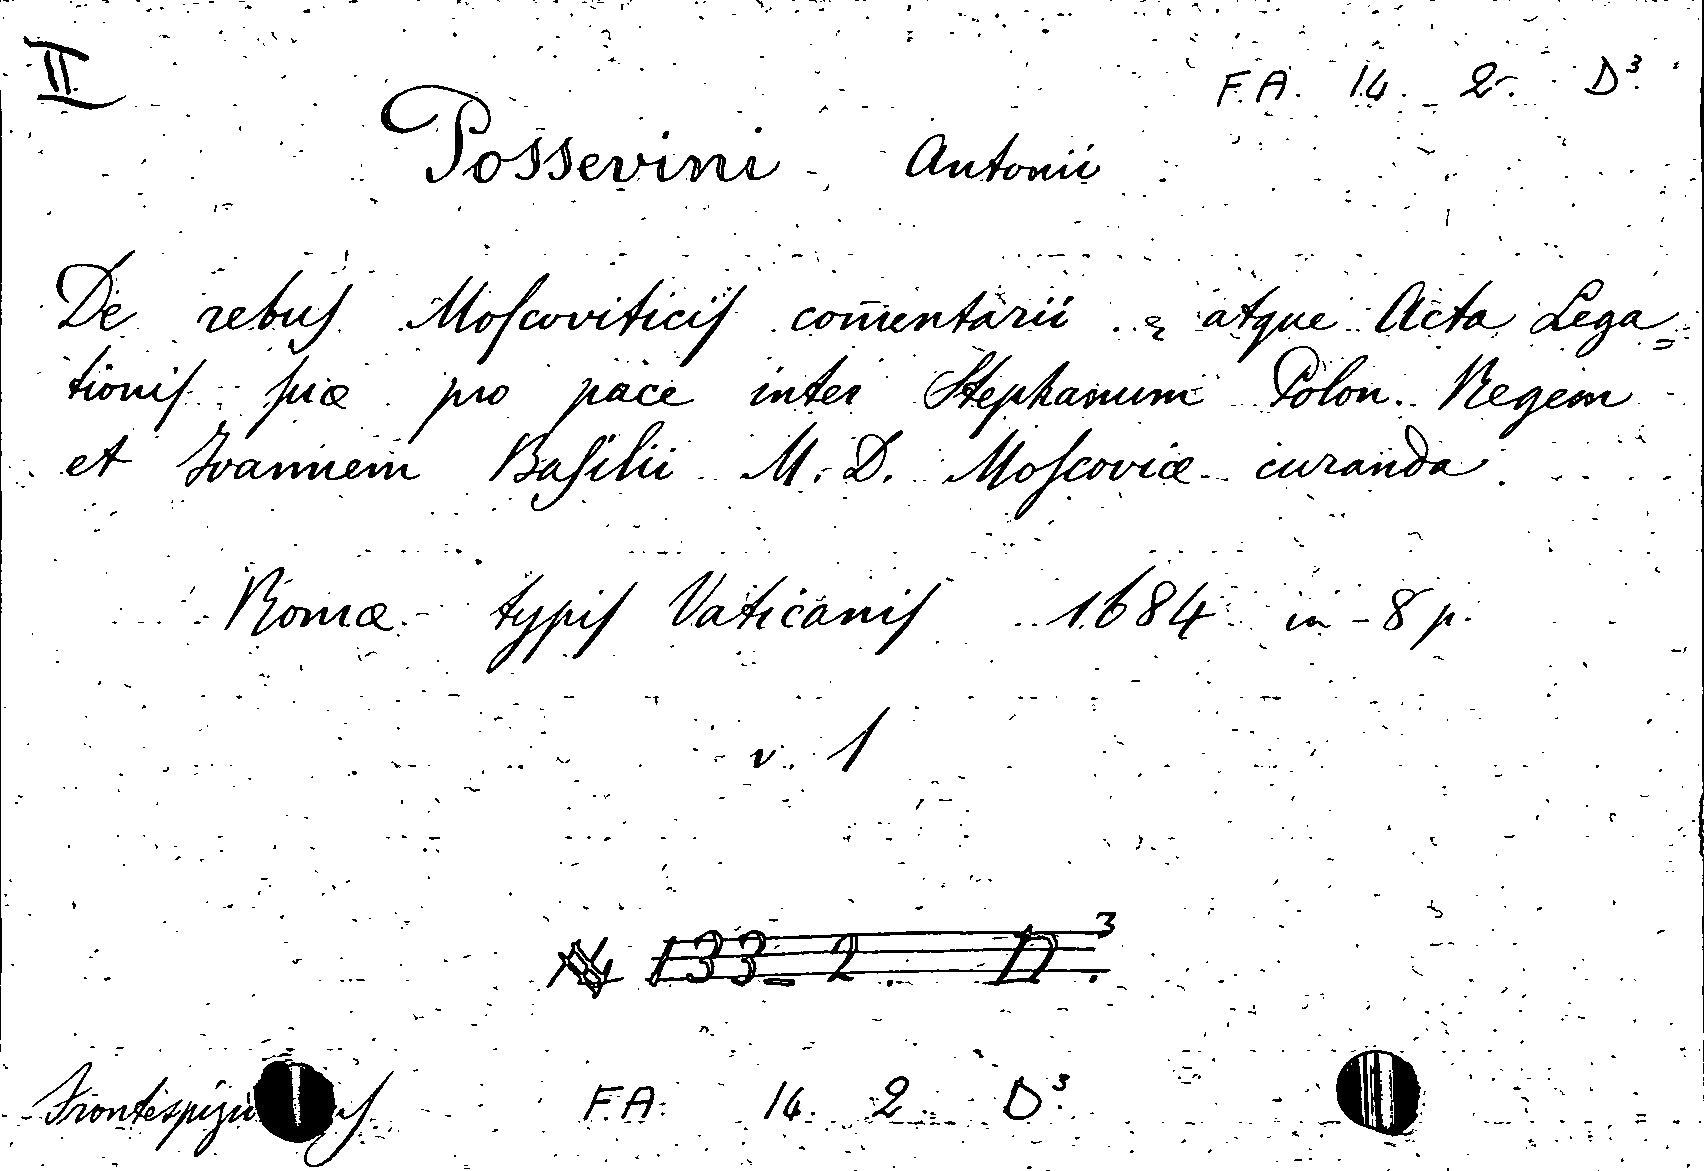 II
F.A. 14. 2. D³.
Possevini Antonii
De rebus Moscoviticis com̄entarii . atque Acta Lega=
tionis suæ pro pace inter Stephanum Polon. Regem
et Ivannem Basilii M. D. Moscoviæ curanda.
Romæ typis Vaticanis 1684 in-8 p.
v. 1
133-2. D³.
F.A. 14. 2. D³.